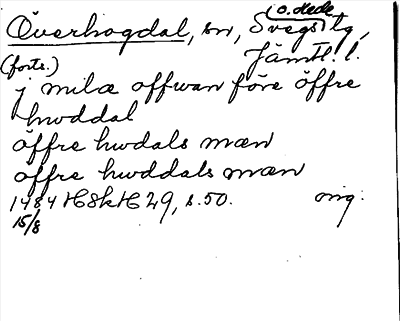 Överhogdal, sn, Svegs o. Hede tg,
(forts.) Jämtl. l.
j milæ offwan före öffre
hwddal
öffre hwdals mæn
öffre hwddals mæn
1484 HSkH 29, s. 50. orig.
15/8